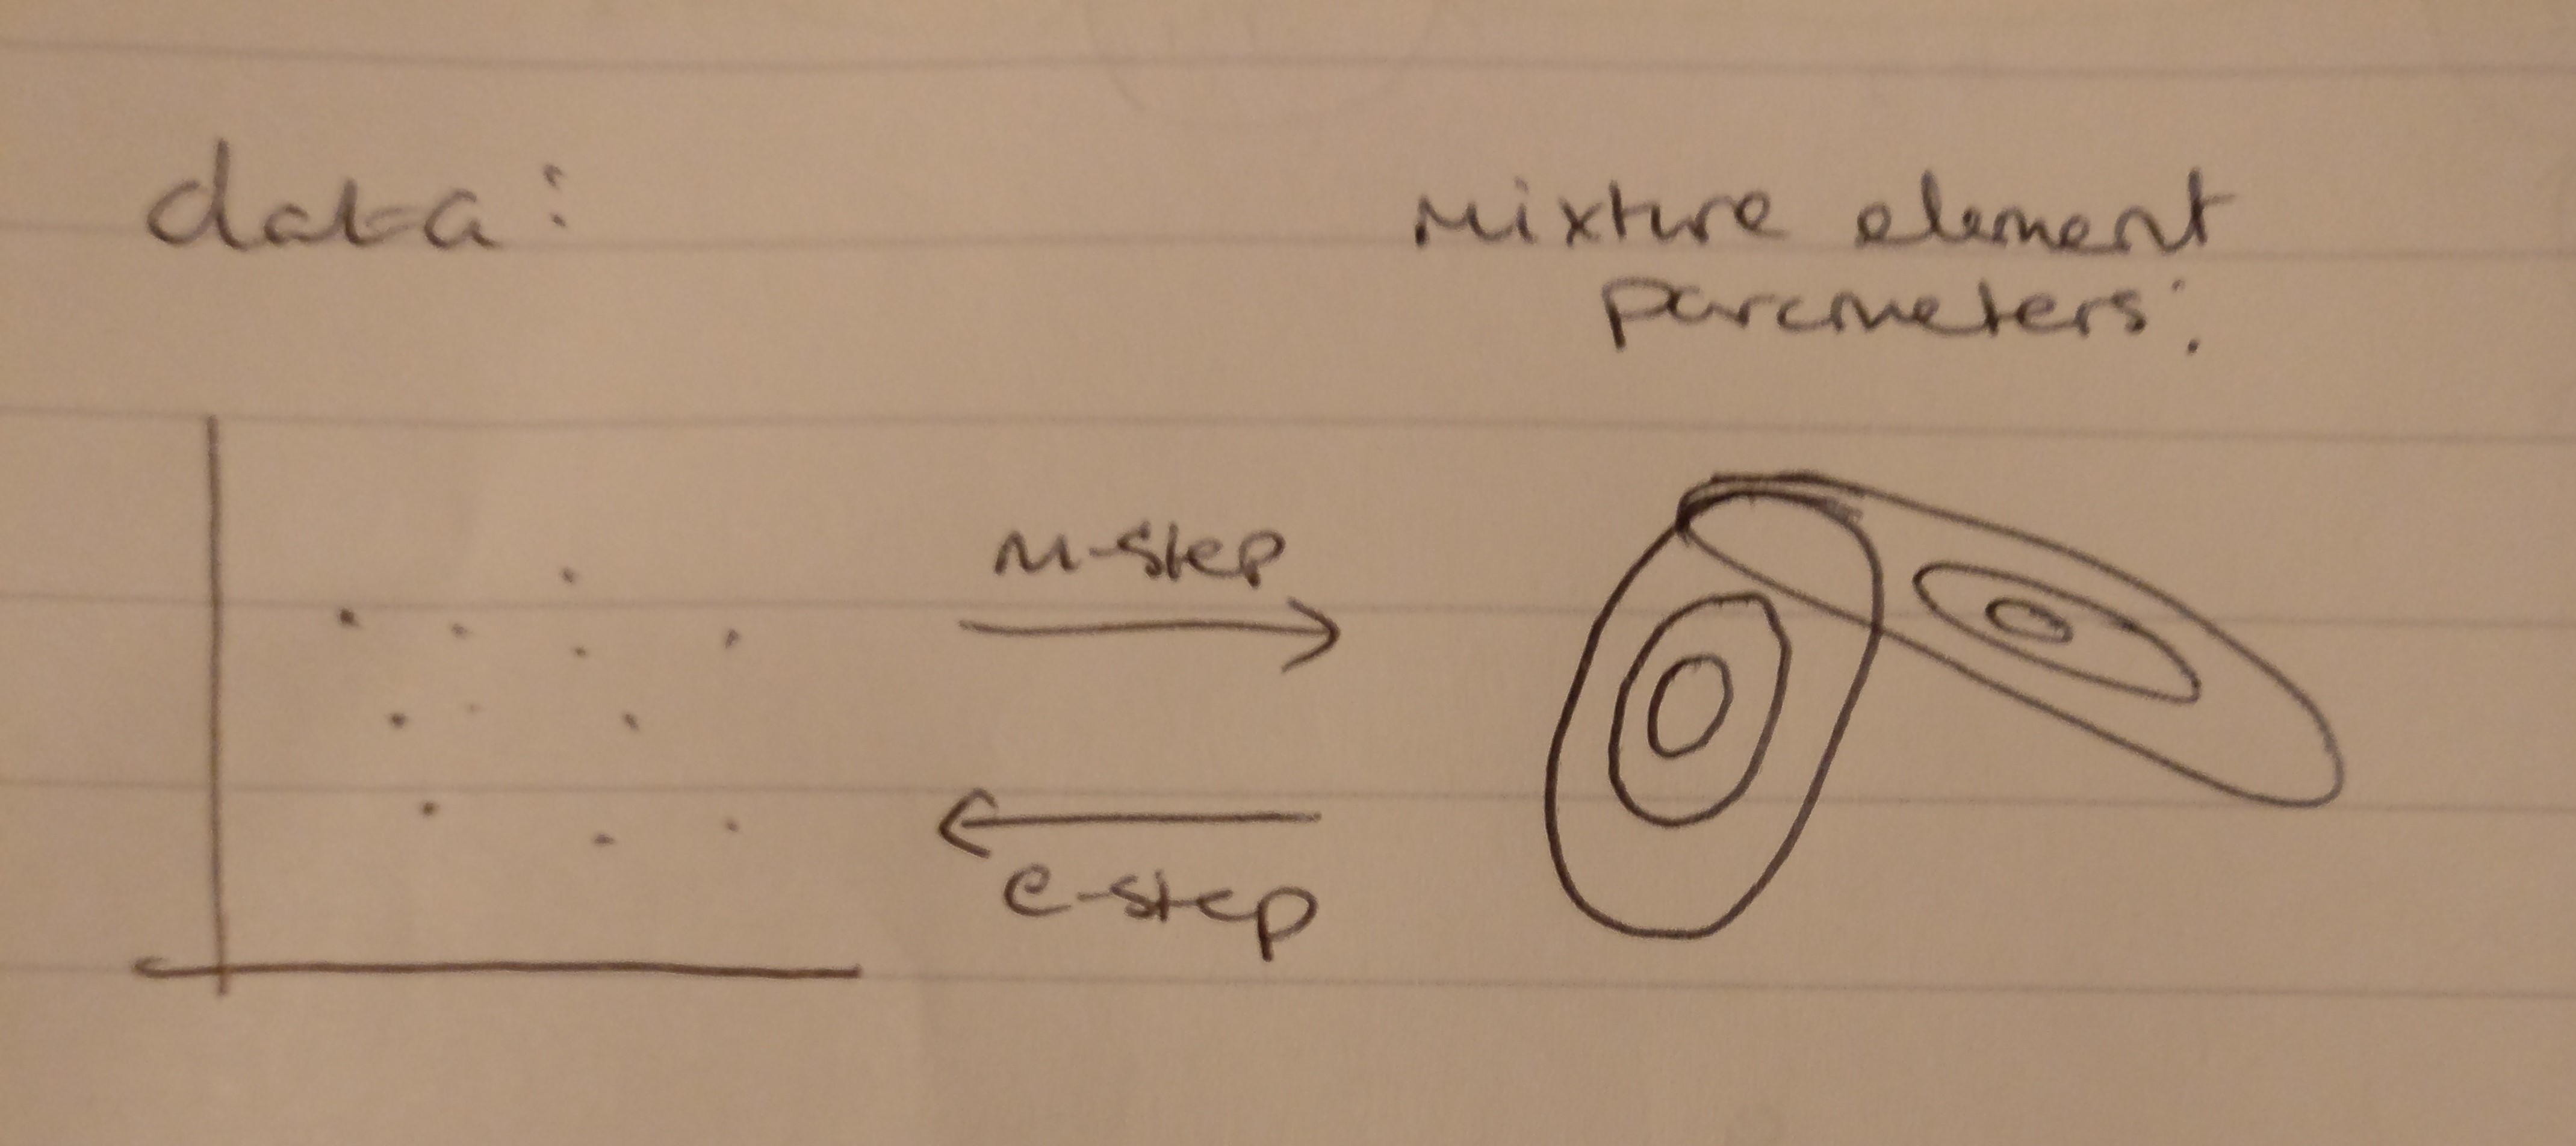 data:
Mixture element
parameters:
M-step
e-step